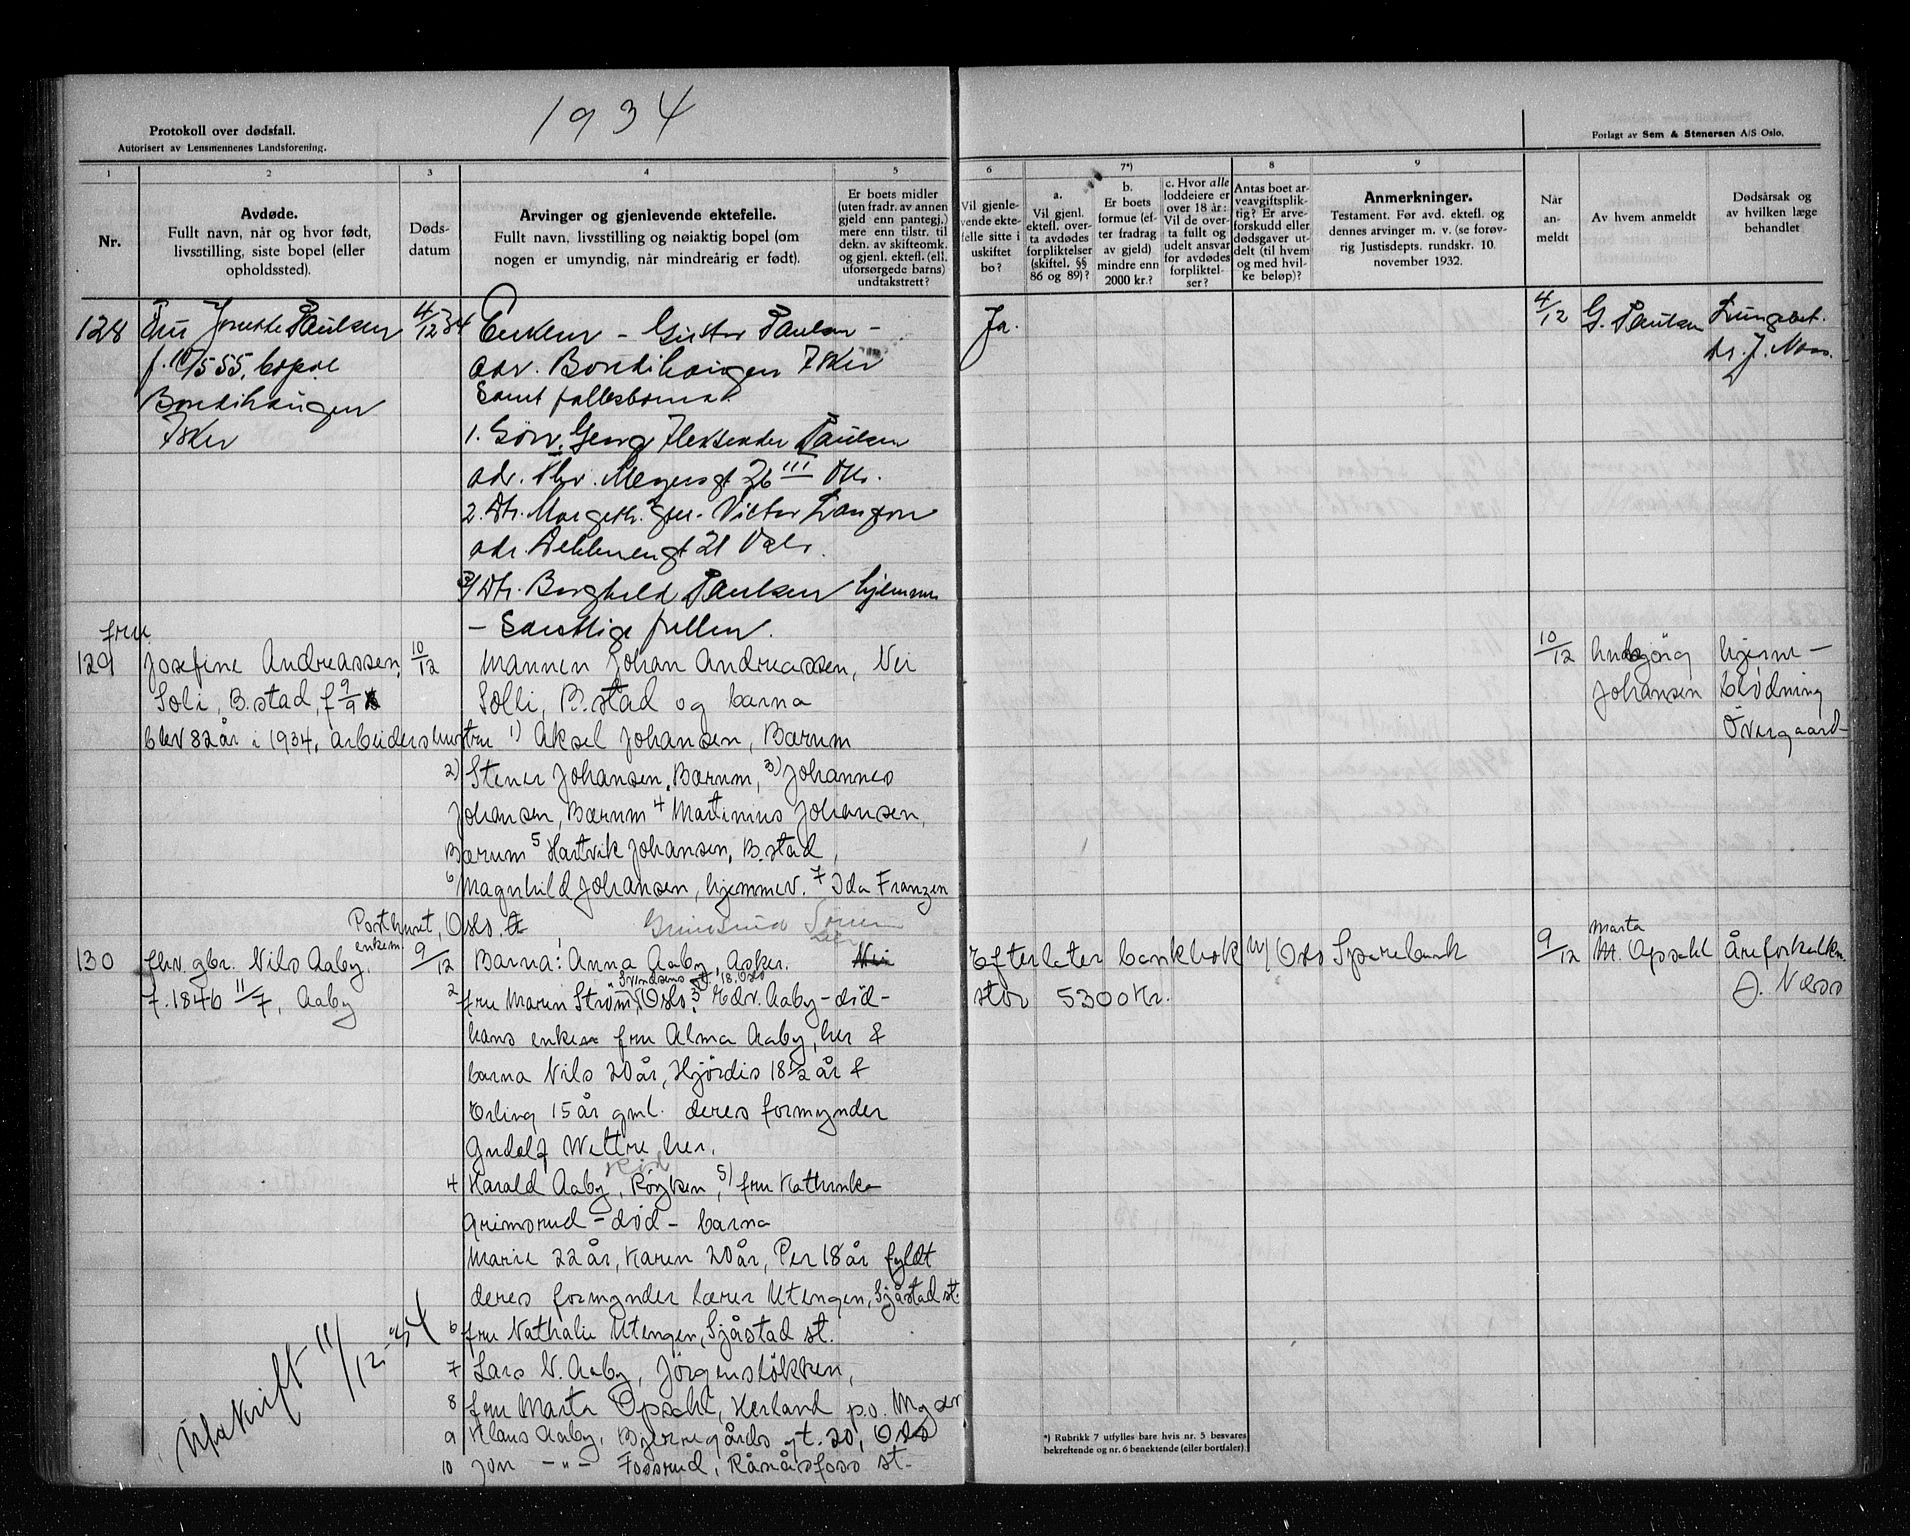 1934
Protokoll over dødsfall.
Autorisert av Lensmennenes Landsforening.
Forlagt av Sem & Stenersen A/S Oslo.
1 2 3 4 5 6 7*) 8 9
Nr.
Avdøde.
Fullt navn, når og hvor født,
livsstilling, siste bopel (eller
opholdssted).
Døds-
datum
Arvinger og gjenlevende ektefelle.
Fullt navn, livsstilling og nøiaktig bopel (om
nogen er umyndig, når mindreårig er født).
Er boets midler
(uten fradr. av annen
gjeld enn pantegj.)
mere enn tilstr. til
dekn. av skifteomk.
og gjenl. ektefl. (ell.
uforsørgede barns)
undtakstrett?
Vil gjenle-
vende ekte-
felle sitte i
uskiftet
bo?
a.
Vil gjenl.
ektefl. over-
ta avdødes
forpliktelser
(skiftel. §§
86 og 89)?
b.
Er boets
formue (ef-
ter fradrag
av gjeld)
mindre enn
2000 kr.?
c. Hvor alle
loddeiere er
over 18 år:
Vil de over-
ta fullt og
udelt ansvar
for avdødes
forpliktel-
ser?
Antas boet ar-
veavgiftsplik-
tig? Er arve-
forskudd eller
dødsgaver ut-
delt (til hvem
og med hvil-
ke beløp)?
Anmerkninger.
Testament. Før avd. ektefl. og
dennes arvinger m. v. (se forøv-
rig Justisdepts. rundskr. 10.
november 1932.
Når
an-
meldt
Av hvem anmeldt
Dødsårsak og
av hvilken læge
behandlet
128 Fru Josette Paulsen 4/12 34
bopæl
Bondihaugen
Asker
Enkem - Gustav Paulsen -
adr. Bondihaugen Asker
Samt fellesbarna
1. Sønn Georg Aleksander Paulsen
adr. Thv. Meyersgt 26 III Oslo.
2. Dtr. Margeth. gm. Victor
adr. 21 Oslo.
3/ Dtr. Borghild Paulsen hjemme
- Samtlige fullm.
Ja.
4/12 G. Paulsen Lungebet.
dr. J. Næss.
fru
129 Josefine Andreassen, 10/12
Soli, B.stad, f 9/9
blev 82 år i 1934, arbeiderhustru
Mannen Johan Andreassen, Nei
Solli, B.stad og barna
1) Aksel Johansen, Bærum
2) Stener Johansen, Bærum, 3) Johannes
Johansen, Bærum 4 Martinius Johansen,
Bærum 5 Hartvik Johansen, B.stad,
6 Magnhild Johansen, hjemmev. 7 Ida Franzen
Posthuset, Oslo.
10/12 Johansen
hjerne-
blødning
Övergaard
Grimsrud
130 fhv. gbr. Nils Aaby, enkem. 9/12
f. 1846 11/7, Aaby
Barna: Anna Aaby, Asker. Nei
2 fru Maren Strøm, Svendsens gt. 18, Oslo 3 Edv. Aaby - død -
hans enke fru Alma Aaby, her &
barna Nils 20 år, Hjördis 18 1/2 år &
Erling 15 år gml. deres formynder
Gudolf Wettre her.
4 Harald Aaby, Röyken, 5) fru Kathinka
Grimsrud - död - barna
Marie 22 år, Karen 20 år, Per 18 år fyldt
deres formynder lærer Utengen, Sjåstad st.
6 fru Nathalie Utengen, Sjåstad st.
7 Lars N. Aaby, Jörgenslökken,
8 fru Marta Opsahl, Herland p.o. Mysen
9 Klaus Aaby, Bjerregårds gt. 20, Oslo
10 Jon -"- Fossrud, Rånåsfoss st.
Efterlater bankbok m/ Oslo Sparebank
stor 5300 kr.
9/12 Marta
M. Opsahl Åreforkalkn.
J. Næss
Utskrift 11/12-34
*) Rubrikk 7 utfylles bare hvis nr. 5 besvares
bekreftende og nr. 6 benektende (eller bortfaller).